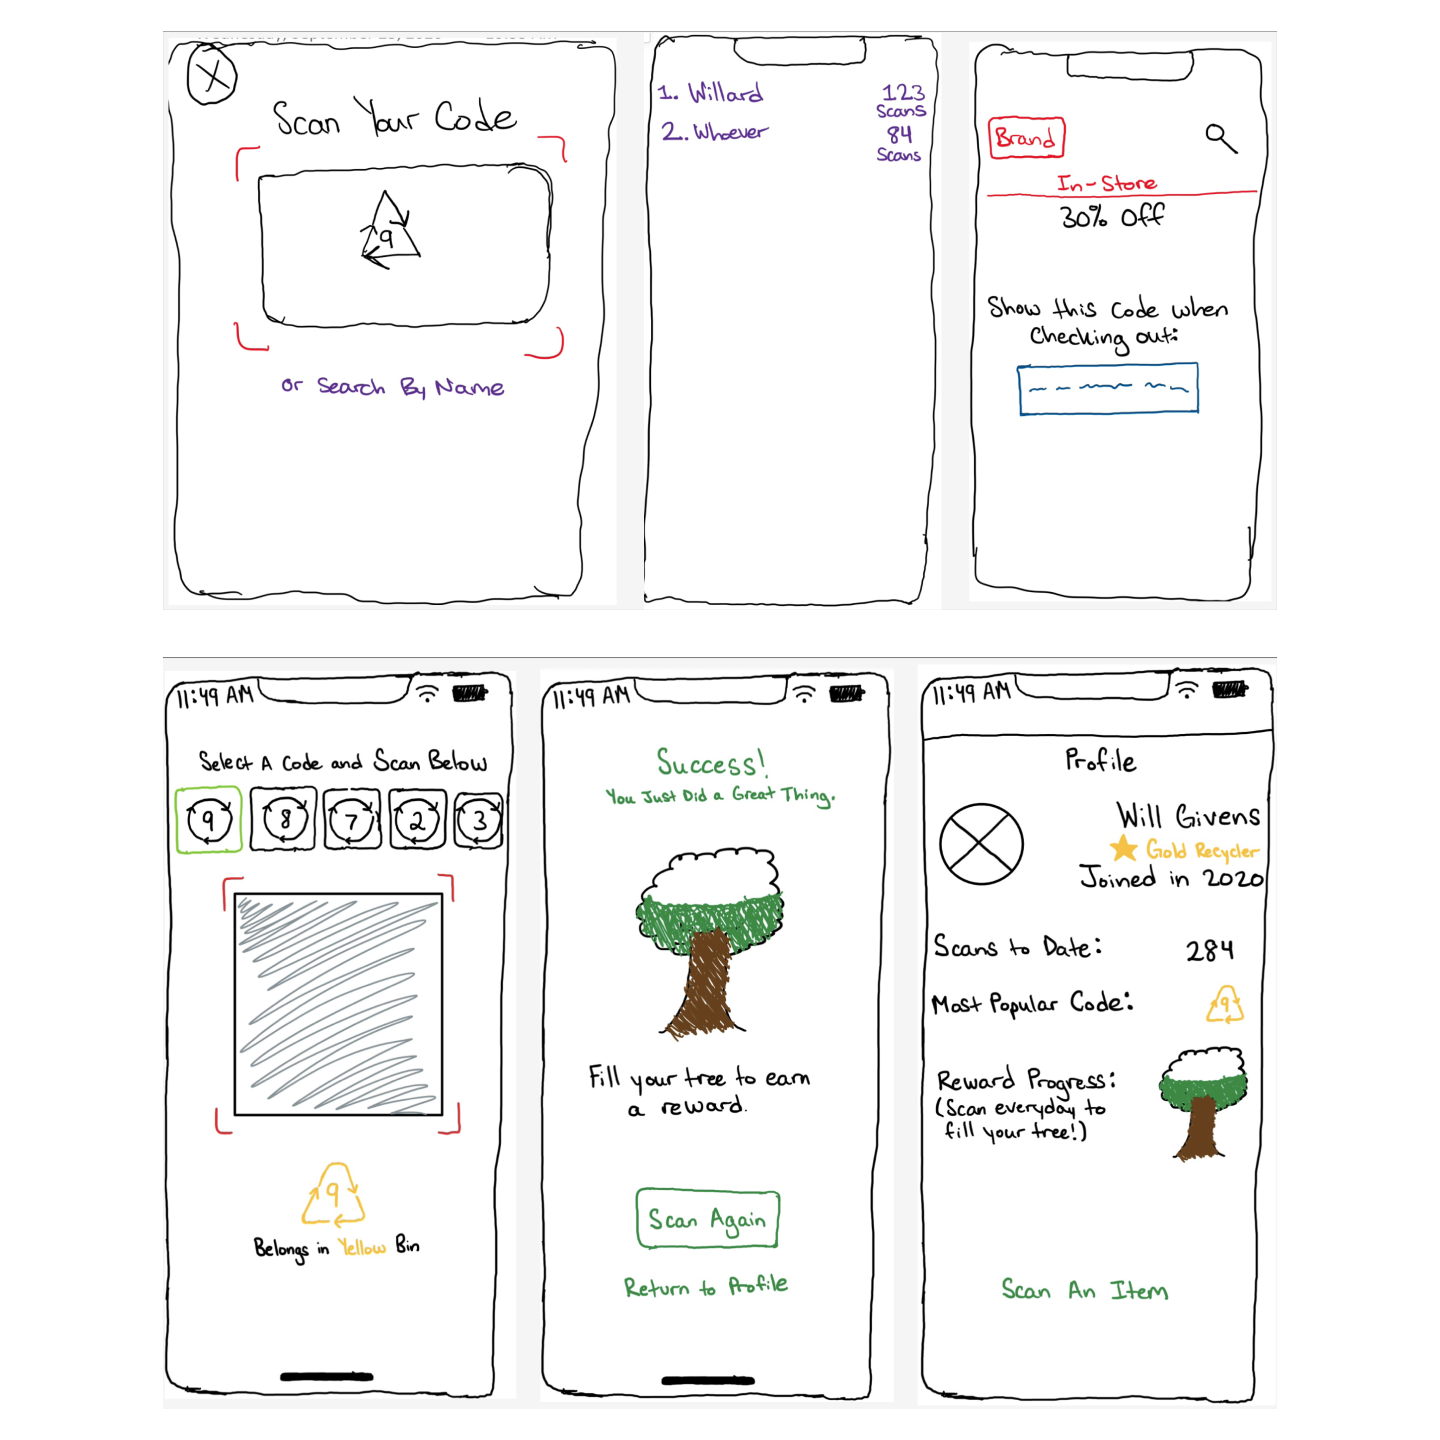 Scan Your Code
9
or Search By Name
1. Willard 123
Scans
2. Whoever 84
Scans
Brand
In-Store
30% Off
Show this Code when
Checking out:
11:49 AM
Select A Code and Scan Below
9 8 7 2 3
9
Belongs in Yellow Bin
11:49 AM
Success!
You Just Did a Great Thing.
Fill your tree to earn
a reward.
Scan Again
Return to Profile
11:49 AM
Profile
Will Givens
Gold Recycler
Joined in 2020
Scans to Date: 284
Most Popular Code: 9
Reward Progress:
(Scan everyday to
fill your tree!)
Scan An Item